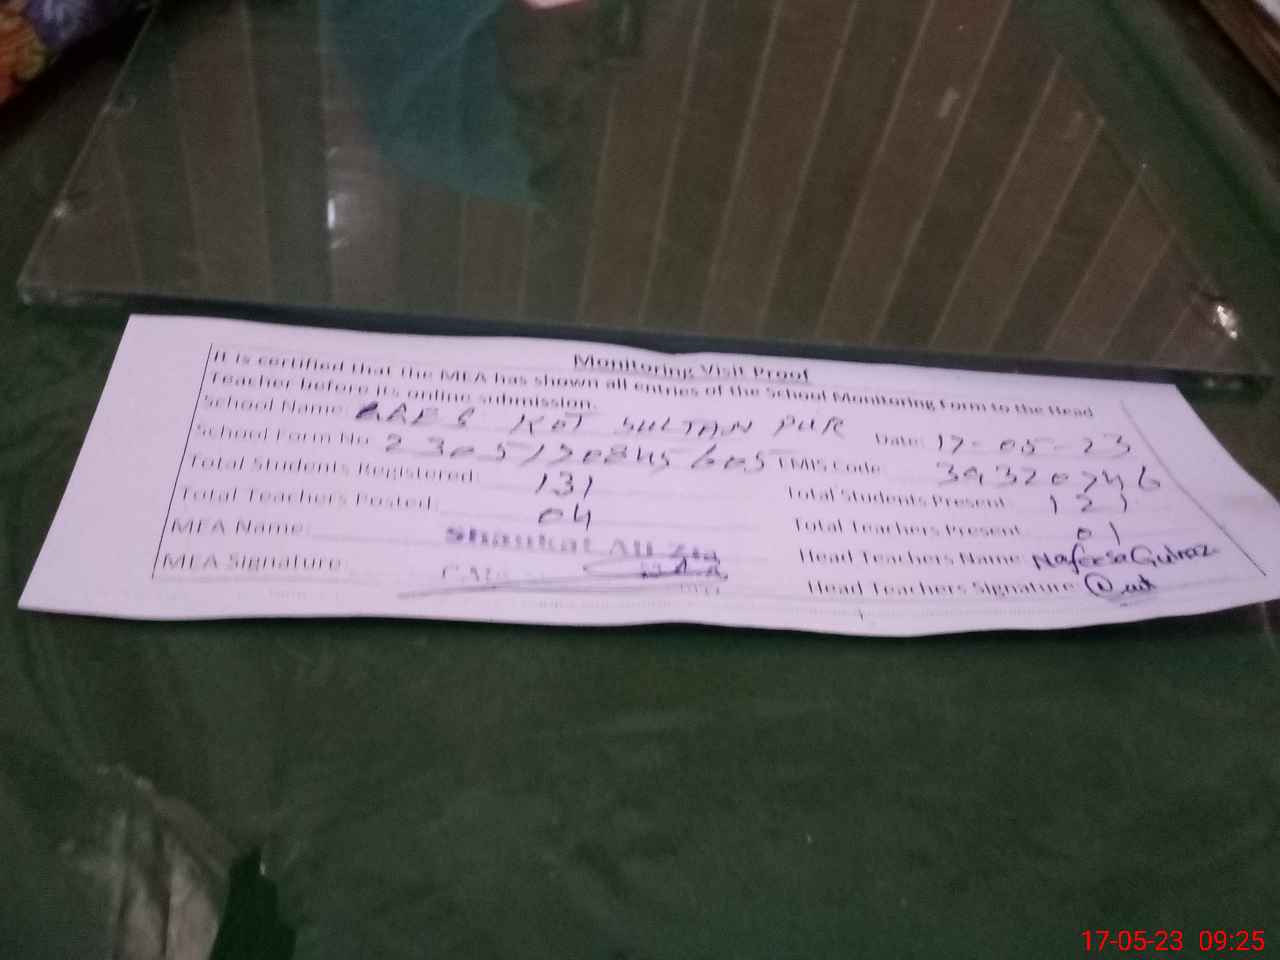 Monitoring Visit Proof
It is certified that the MEA has shown all entries of the School Monitoring Form to the Head
Teacher before its online submission.
School Name: KOT SULTAN PUR Date: 17-05-23
School Form No: EMIS Code:
Total Students Registered: 131 Total Students Present: 121
Total Teachers Posted: 04 Total Teachers Present: 01
MEA Name: Shaukat Ali Zia Head Teachers Name
MEA Signature: Head Teachers Signature
17-05-23 09:25